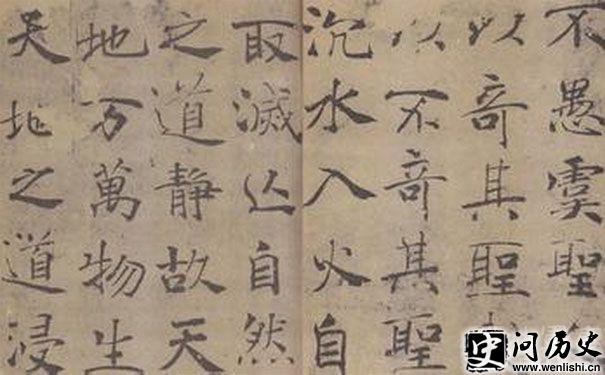 不愚虞聖
以奇其聖
以不奇其聖
沉水入火自
取滅亡自然
之道靜故天
地万萬物生
天地之道浸
问历史
www.wenlishi.cn